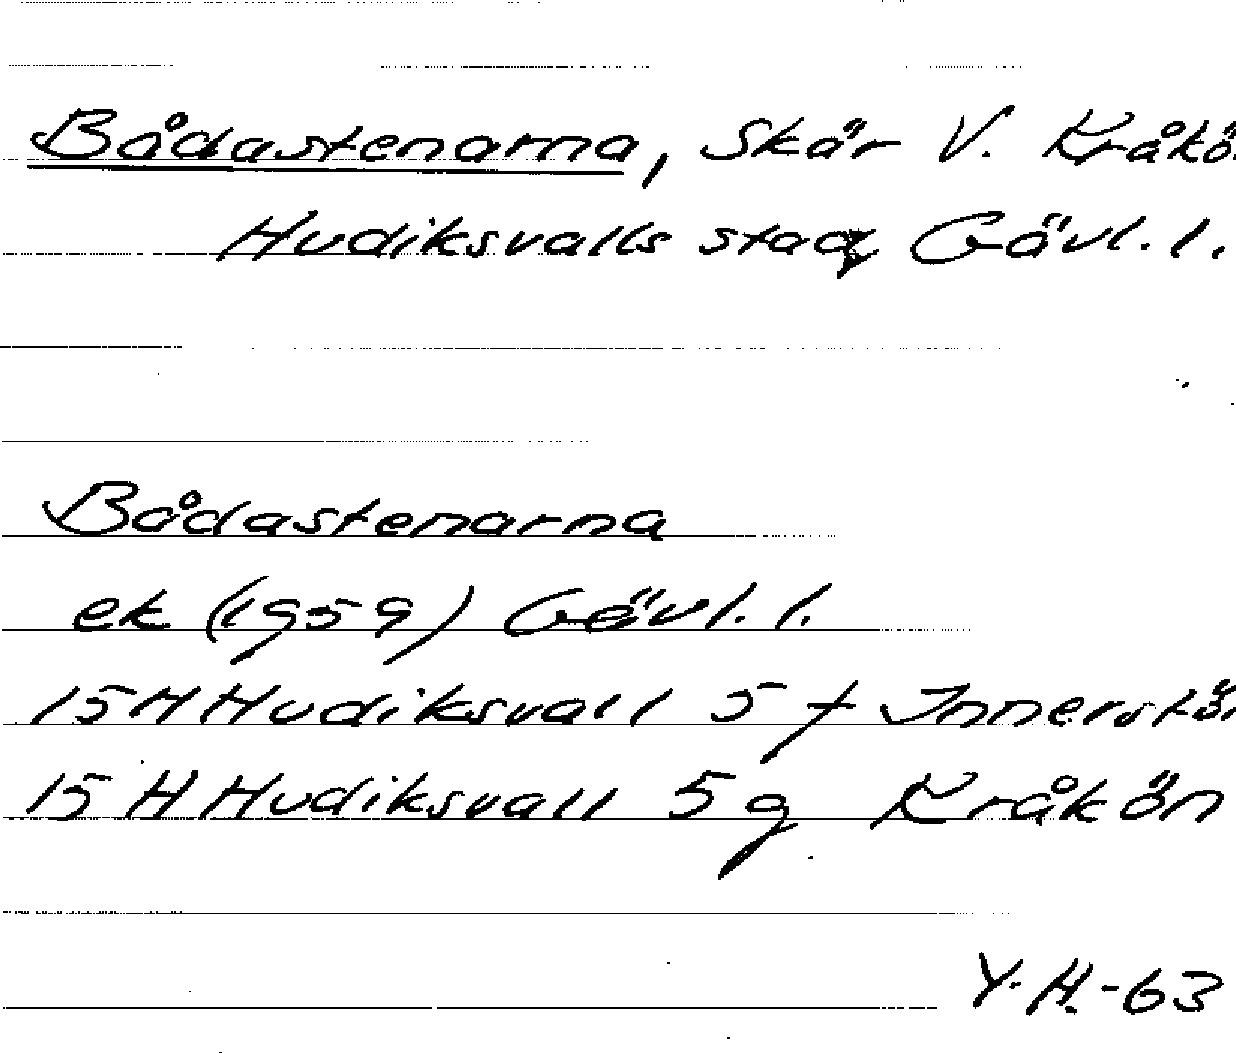 Bådastenarna, Skär V. Kråkö.
Hudiksvalls stad, Gävl. l.
Bådastenarna
ek (1959) Gävl. l.
15 H Hudiksvall 5 f Innerstö
15 H Hudiksvall 5 g Kråkön
Y.H.-63